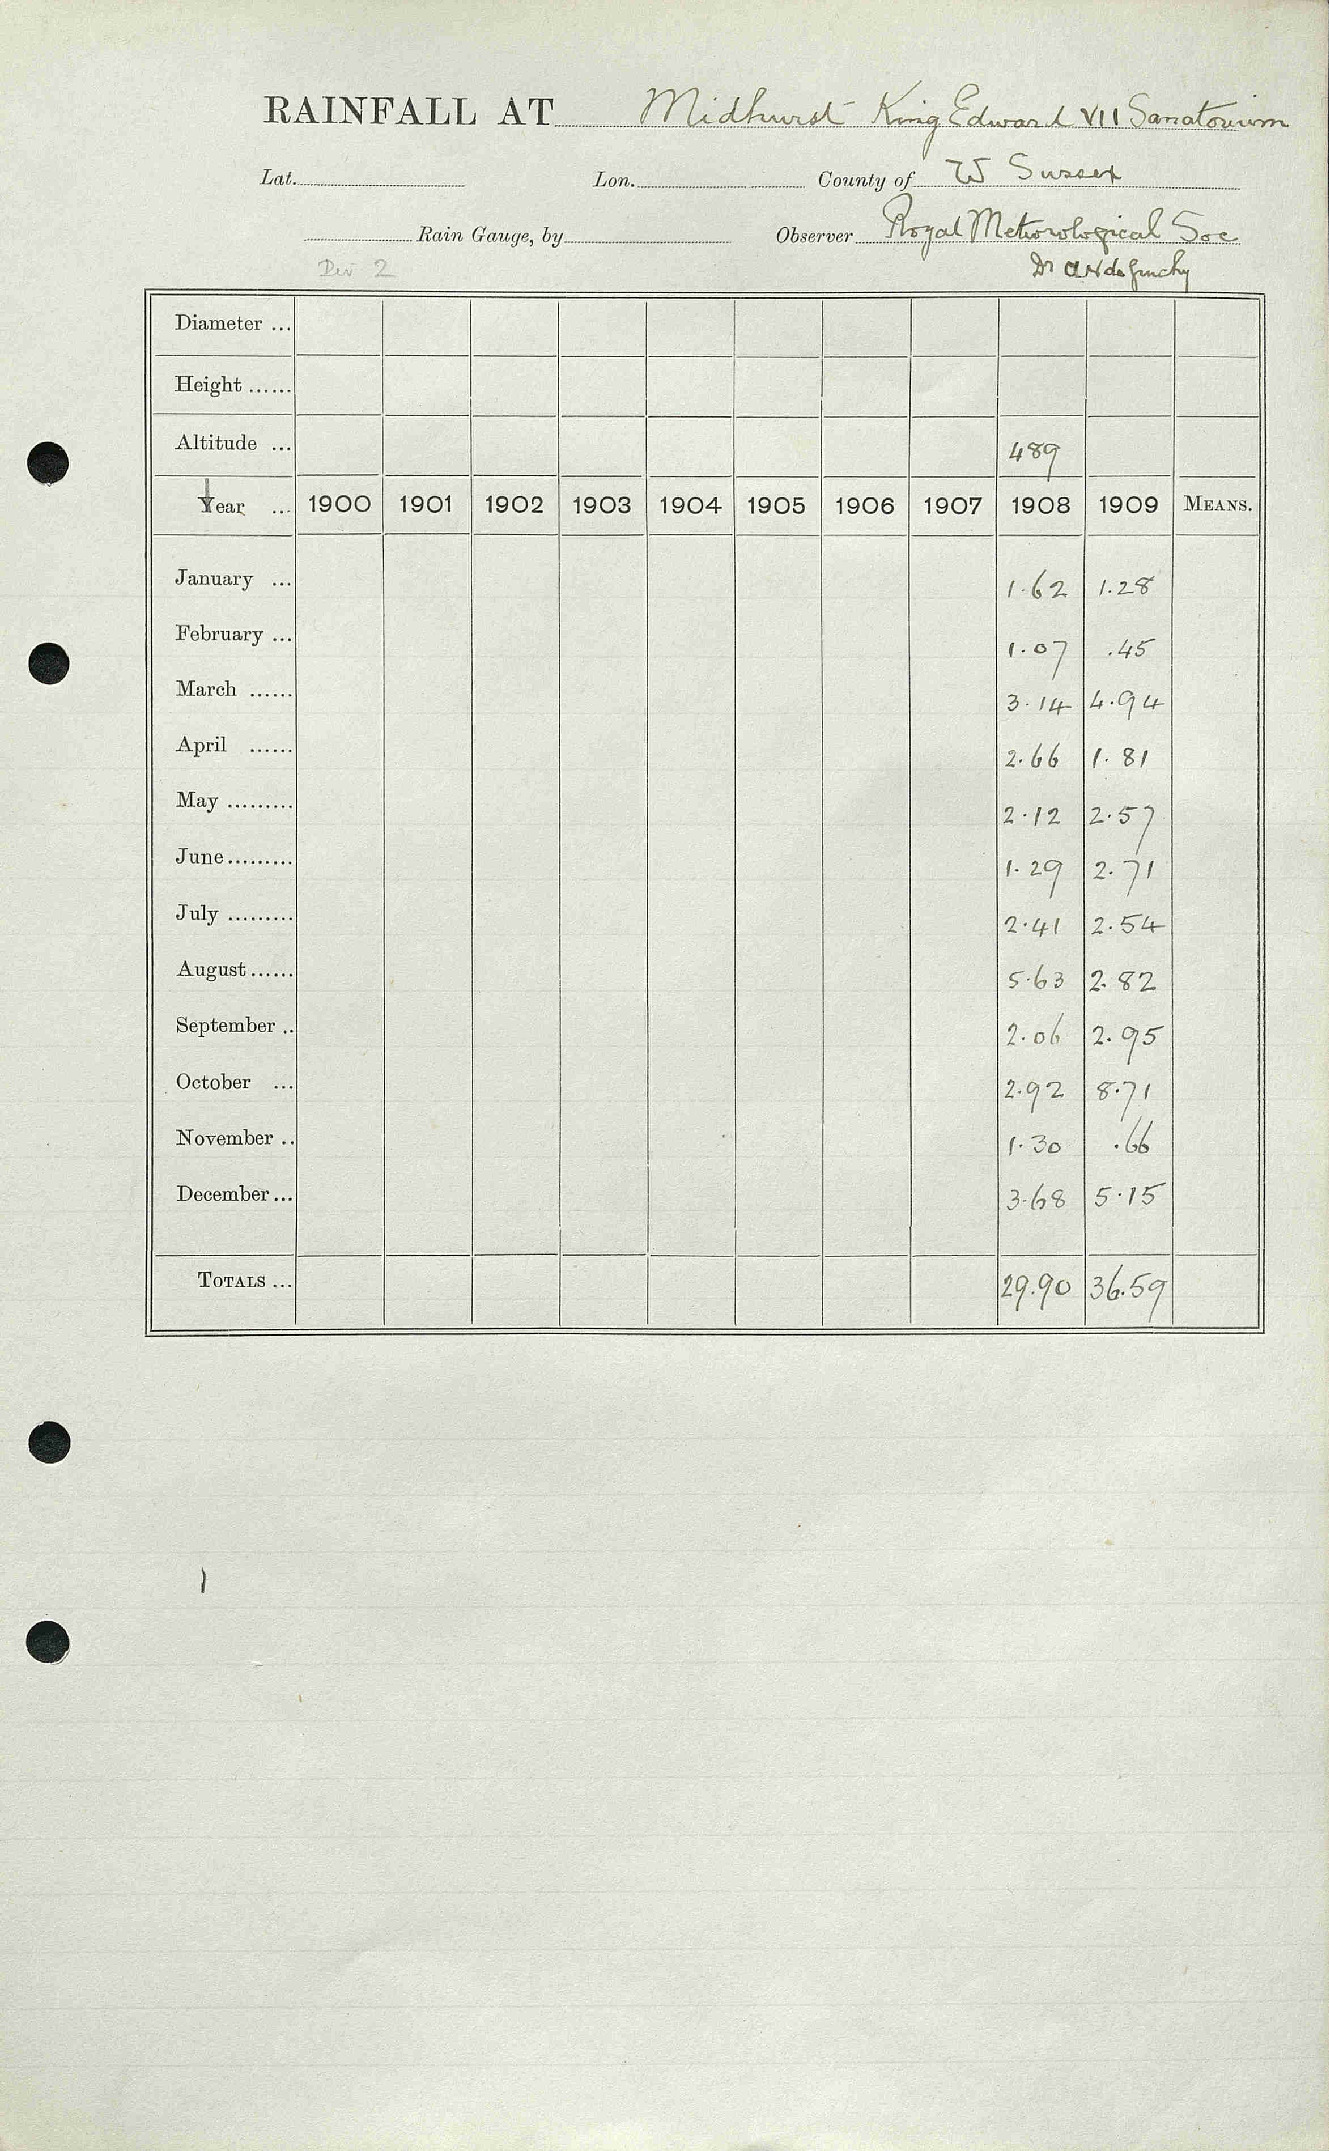 RAINFALL AT Midhurst King Edward VII Sanatorium
Lat. Lon. County of W Sussex
Rain Gauge, by Observer Royal Meteorological Soc
Div 2 Dr
Diameter ...
Height ......
Altitude ... 489
Year ... 1900 1901 1902 1903 1904 1905 1906 1907 1908 1909 MEANS.
January ... 1.62 1.28
February ... 1.07 .45
March ...... 3.14 4.94
April ...... 2.66 1.81
May ......... 2.12 2.57
June......... 1.29 2.71
July ......... 2.41 2.54
August...... 5.63 2.82
September .. 2.06 2.95
October ... 2.92 8.71
November .. 1.30 .66
December... 3.68 5.15
TOTALS ... 29.90 36.59